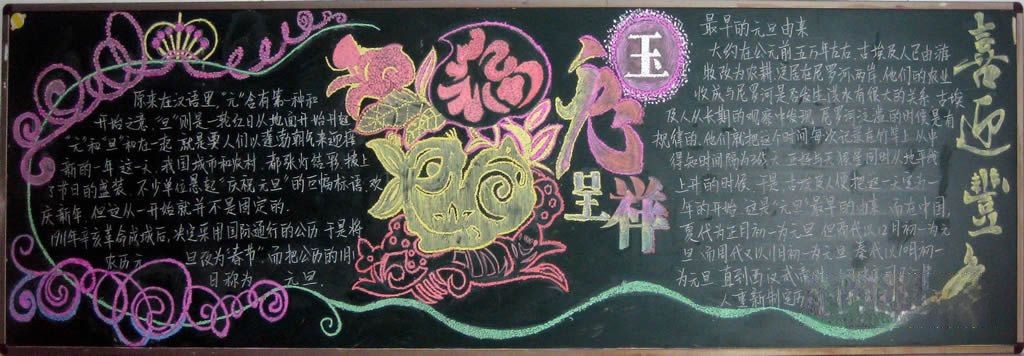 原来在汉语里,"元"含有第一种和
开始之意,"旦"则是一轮红日从地面开始升起
"元"和"旦"和在一起 就是要人们以蓬勃朝气来迎接
新的一年 这一天 我国城市和农村 都张灯结彩 披上
了节日的盛装 不少单位悬起"庆祝元旦"的巨幅标语 欢
庆新年. 但这从一开始就并不是固定的.
1911年辛亥革命成城后,决定采用国际通行的公历 于是将
农历元 旦改为"春节",而把公历的1月1
日称为 元旦.
玉兔呈祥
最早的元旦由来
大约在公元前五万年左右,古埃及人已由游
牧改为农耕,定居在尼罗河两岸,他们的农业
收成与尼罗河是否发生洪水有很大的关系.古埃
及人从长期的观察中发现,尼罗河泛滥的时候是有
规律的,他们就把这个时间每次记录在竹竿上,从中
得知时间隔为365天
上升的时候 于是 古埃及人便把这一天定为一
年的开始,这是"元旦"最早的由来.而在中国
夏代为正月初一为元旦 但商代以12月初一为元
旦 而周代又以11月初一为元旦 秦代以10月初一
为元旦 直到西汉武帝时
人重新制定历
喜迎豐年